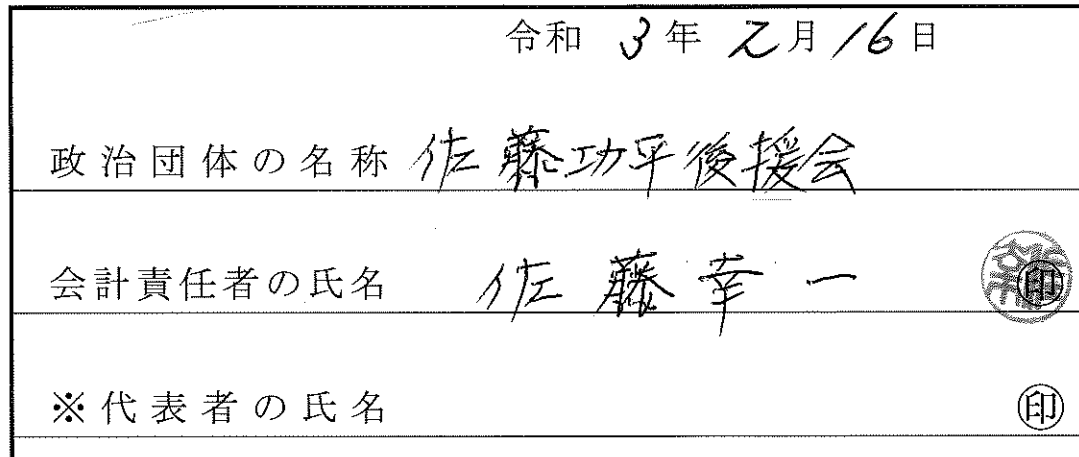 令和 3年 2月 16日
政治団体の名称 佐藤功平後援会
会計責任者の氏名 佐藤幸一 印
※代表者の氏名 印